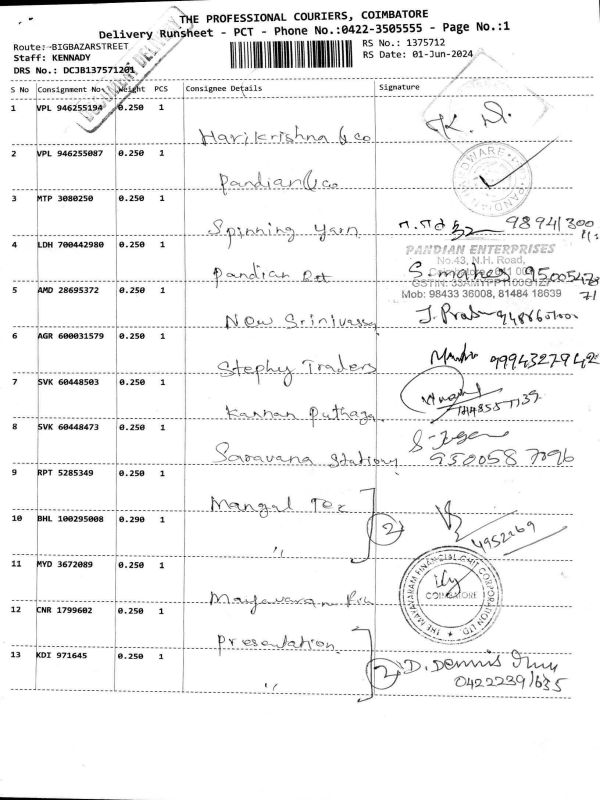 THE PROFESSIONAL COURIERS, COIMBATORE
Delivery Runsheet - PCT - Phone No.:0422-3505555 - Page No.:1
Route: BIGBAZARSTREET
RS No.: 1375712
Staff: KENNADY
RS Date: 01-Jun-2024
DRS No.: DCJB137571201
S No Consignment No Weight PCS Consignee Details Signature
1 VPL 946255194 0.250 1
Harikrishna & co K.
2 VPL 946255087 0.250 1
Pandian & co
3 MTP 3080250 0.250 1
Spinning Yarn 98941300
4 LDH 700442980 0.250 1
PANDIAN ENTERPRISES
No.43, N.H. Road,
Pandian Ent S. mahes
5 AMD 28695372 0.250 1
Mob: 98433 36008, 81484 18639
New Srinivassa J. Prabu
6 AGR 600031579 0.250 1
Stephy Traders 9994327942
7 SVK 60448503 0.250 1
Kannan Puthaga
8 SVK 60448473 0.250 1
Saravana Stationy 950058 7096
9 RPT 5285349 0.250 1
Mangal Tex
10 BHL 100295008 0.290 1
" 2 4952269
11 MYD 3672089 0.250 1
THE MAYAVARAM FINANCIAL CHIT CORPORATION LTD
COIMBATORE
Mayavaram
12 CNR 1799602 0.250 1
Presentation
13 KDI 971645 0.250 1
" 2 D. Dennis
04222391635